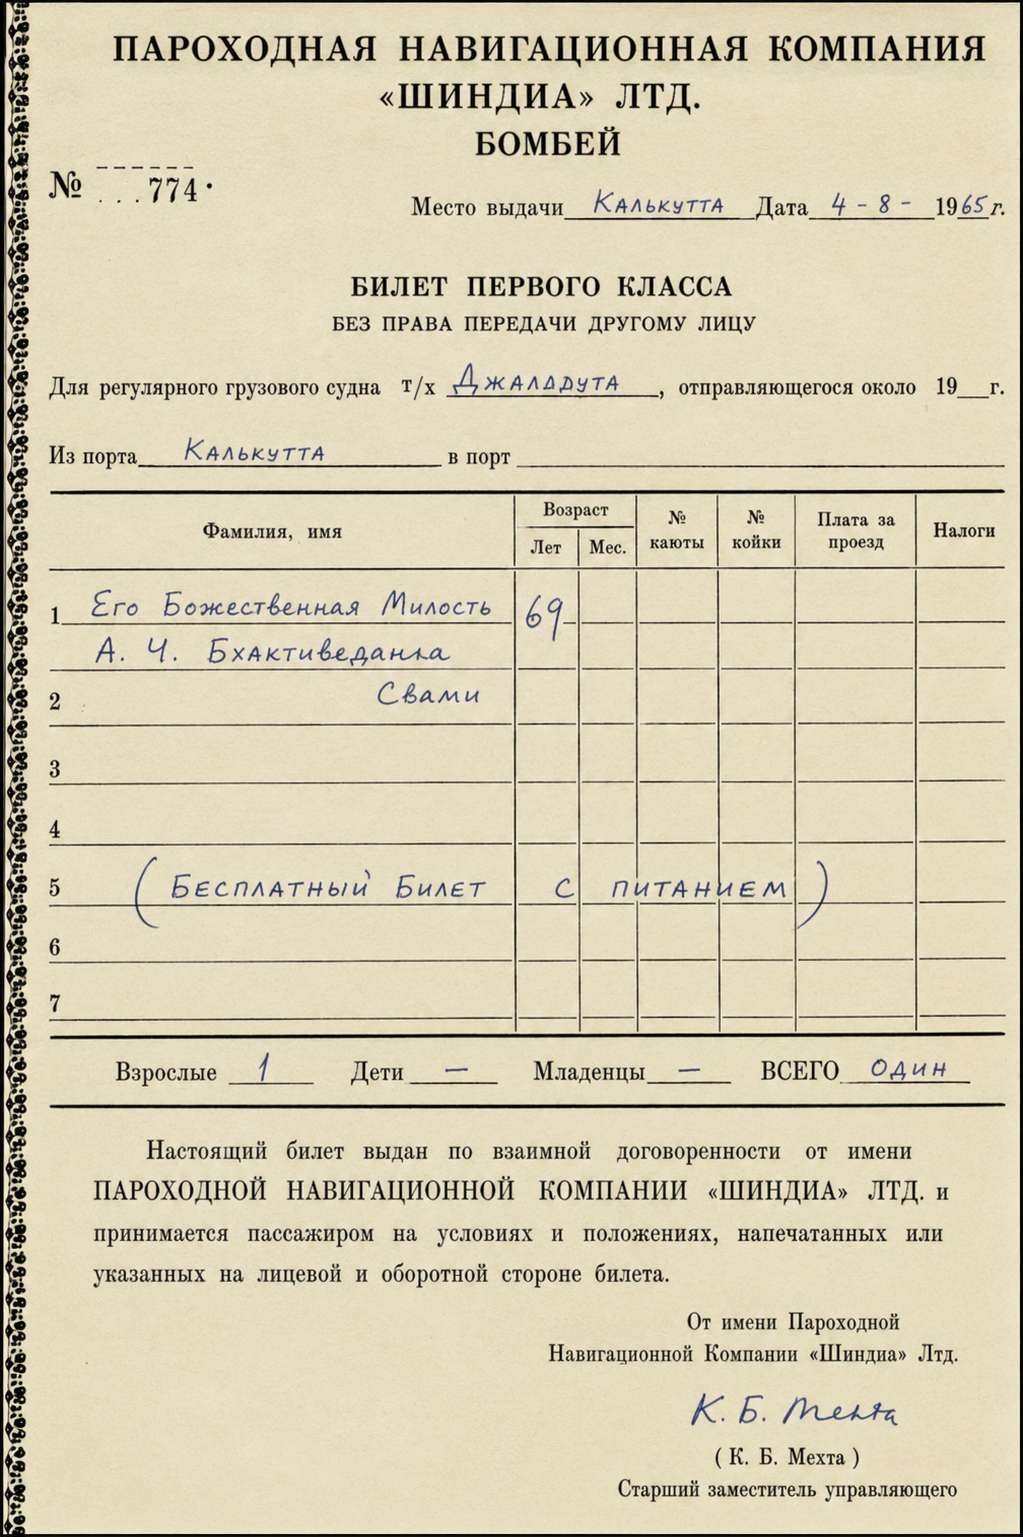 ПАРОХОДНАЯ НАВИГАЦИОННАЯ КОМПАНИЯ
«ШИНДИА» ЛТД.
БОМБЕЙ
№ ...774.
Место выдачи Калькутта Дата 4-8- 1965г.
БИЛЕТ ПЕРВОГО КЛАССА
БЕЗ ПРАВА ПЕРЕДАЧИ ДРУГОМУ ЛИЦУ
Для регулярного грузового судна т/х Джаладута, отправляющегося около 19__г.
Из порта Калькутта в порт
Фамилия, имя Возраст Лет Мес. № каюты № койки Плата за проезд Налоги
1 Его Божественная Милость 69
А. Ч. Бхактиведанта
2 Свами
3
4
5 (Бесплатный Билет с питанием)
6
7
Взрослые 1 Дети — Младенцы — ВСЕГО один
Настоящий билет выдан по взаимной договоренности от имени
ПАРОХОДНОЙ НАВИГАЦИОННОЙ КОМПАНИИ «ШИНДИА» ЛТД. и
принимается пассажиром на условиях и положениях, напечатанных или
указанных на лицевой и оборотной стороне билета.
От имени Пароходной
Навигационной Компании «Шиндиа» Лтд.
К. Б. Мехта
( К. Б. Мехта )
Старший заместитель управляющего